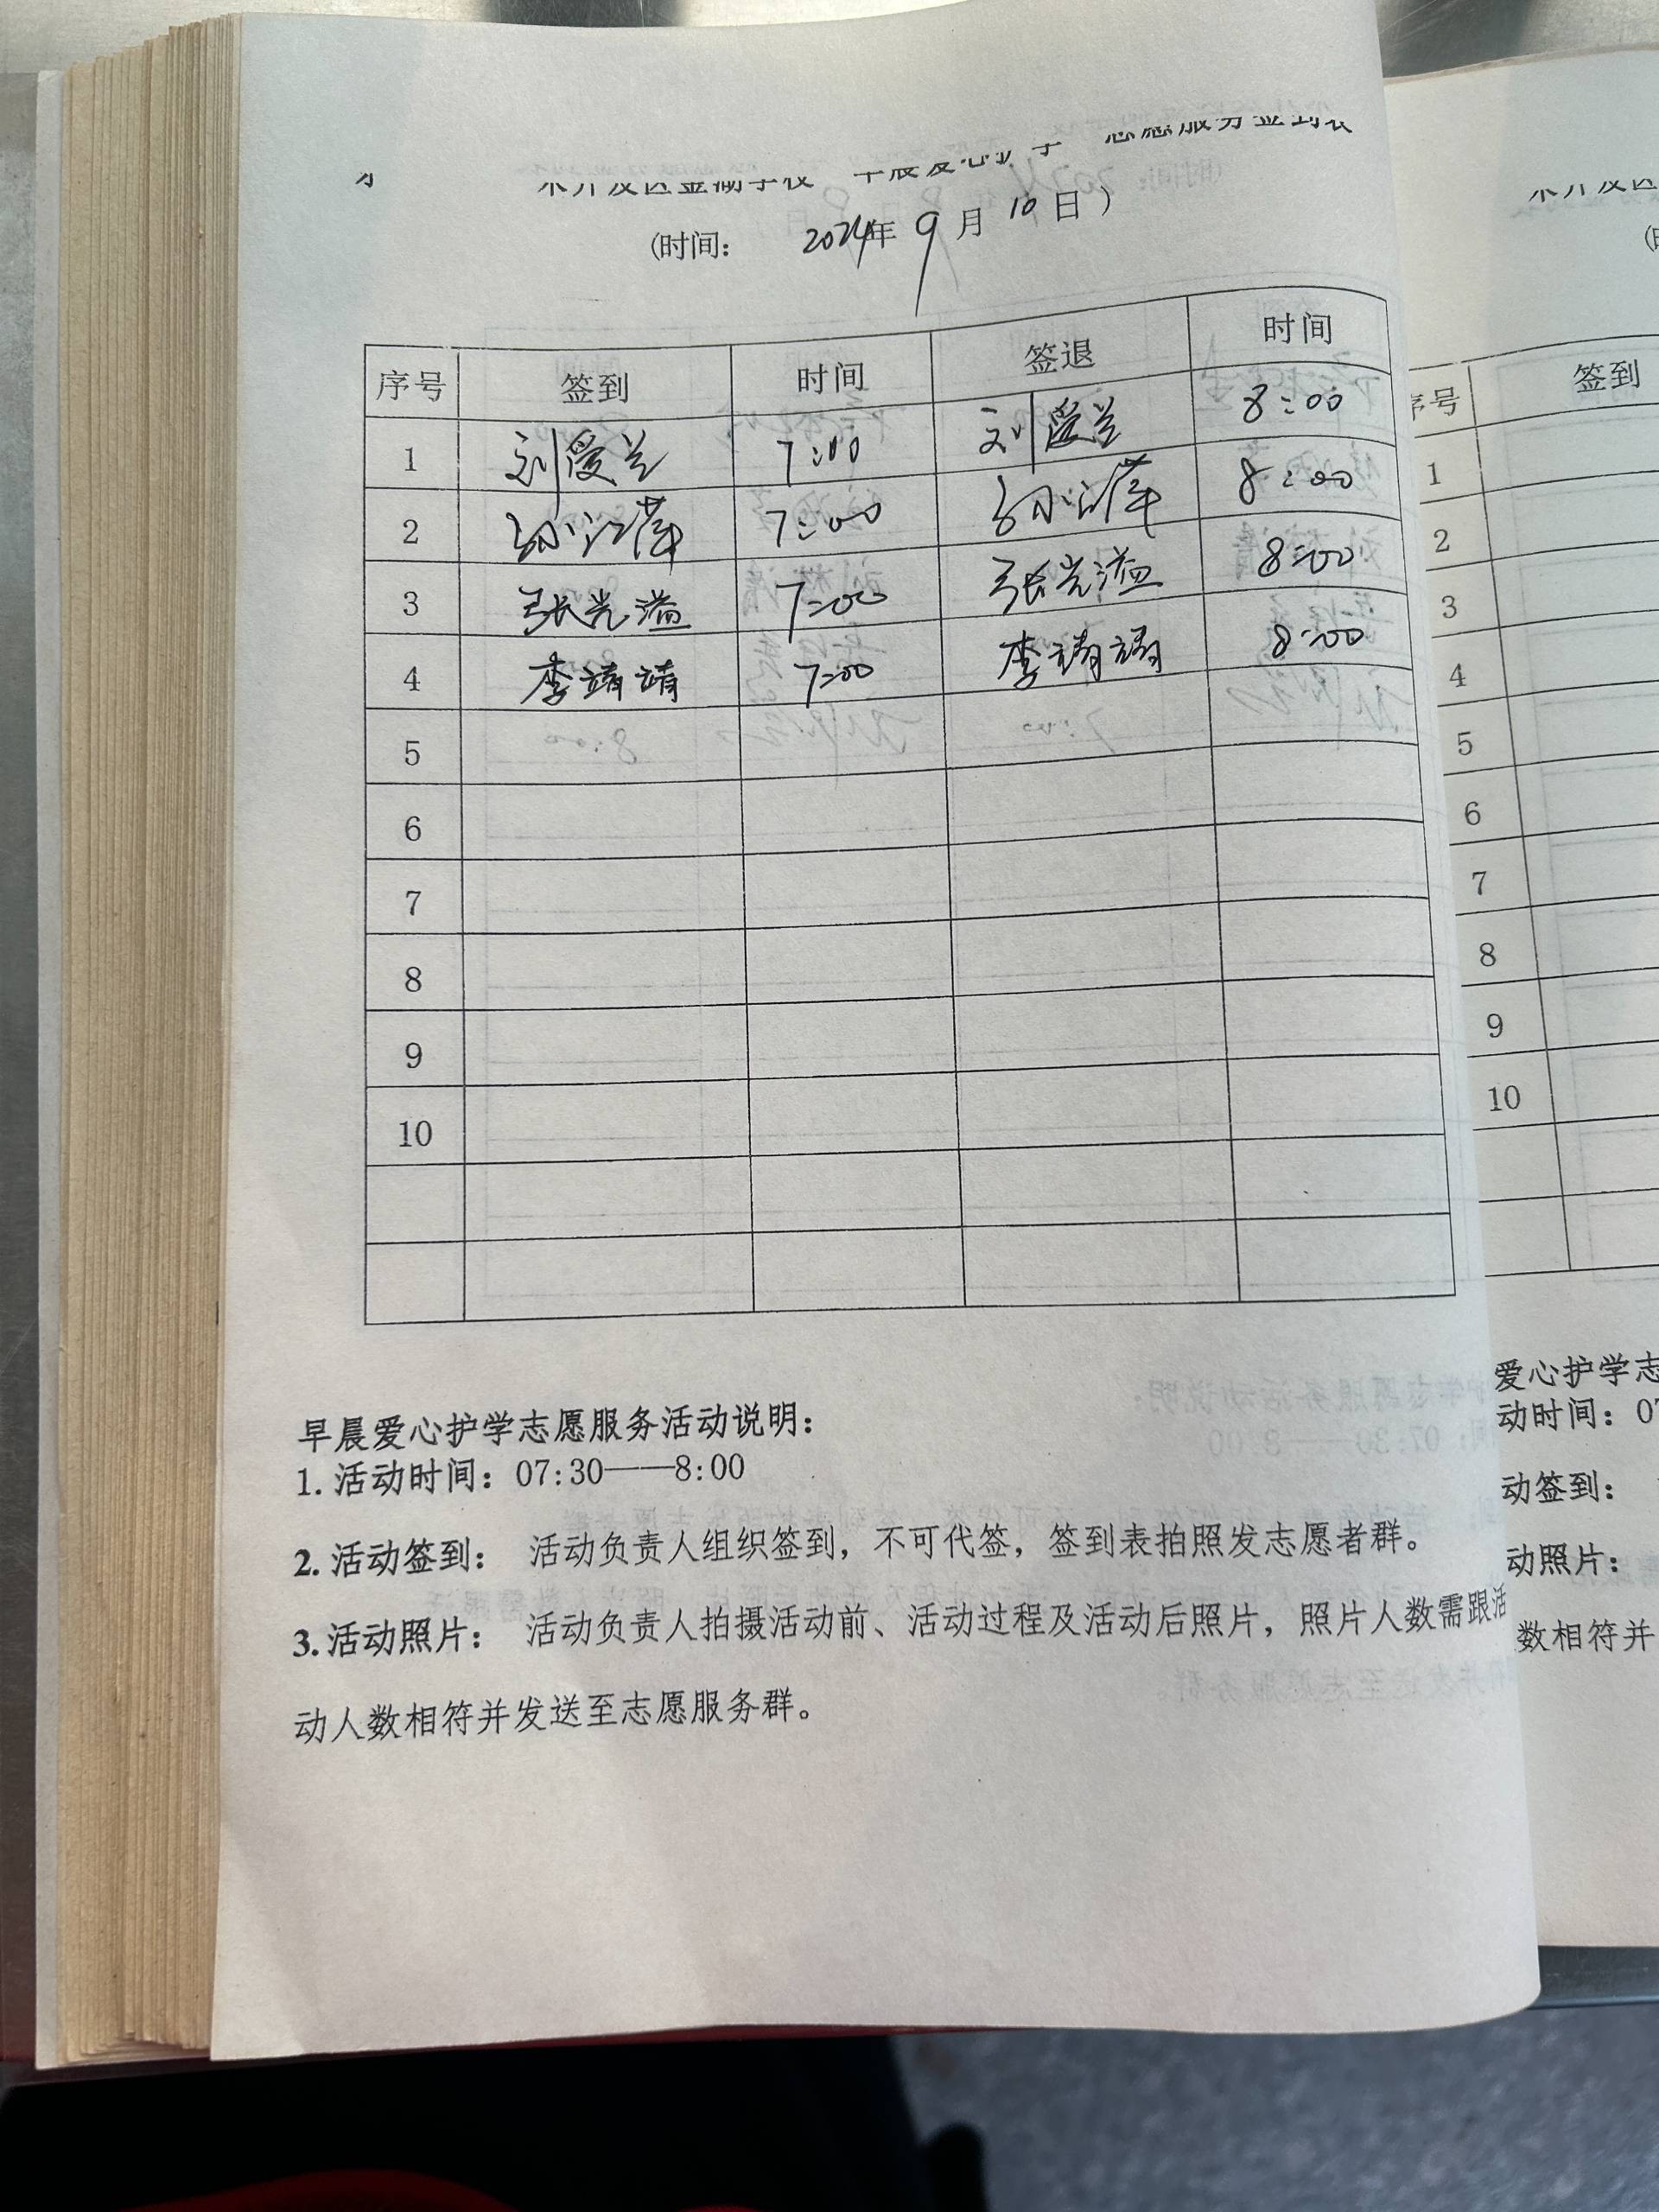 术开发区金湖学校 早晨爱心护学 志愿服务签到表
(时间: 2024年9月10日)
序号 签到 时间 签退 时间
1 刘爱兰 7:00 刘爱兰 8:00
2 孙江萍 7:00 孙江萍 8:00
3 张光溢 7:00 张光溢 8:00
4 李靖靖 7:00 李靖靖 8:00
5
6
7
8
9
10
早晨爱心护学志愿服务活动说明:
1.活动时间: 07:30——8:00
2.活动签到: 活动负责人组织签到,不可代签,签到表拍照发志愿者群。
3.活动照片: 活动负责人拍摄活动前、活动过程及活动后照片,照片人数需跟活
动人数相符并发送至志愿服务群。
术开发区
序号 签到
1
2
3
4
5
6
7
8
9
10
爱心护学志
动时间: 07
动签到:
动照片:
数相符并